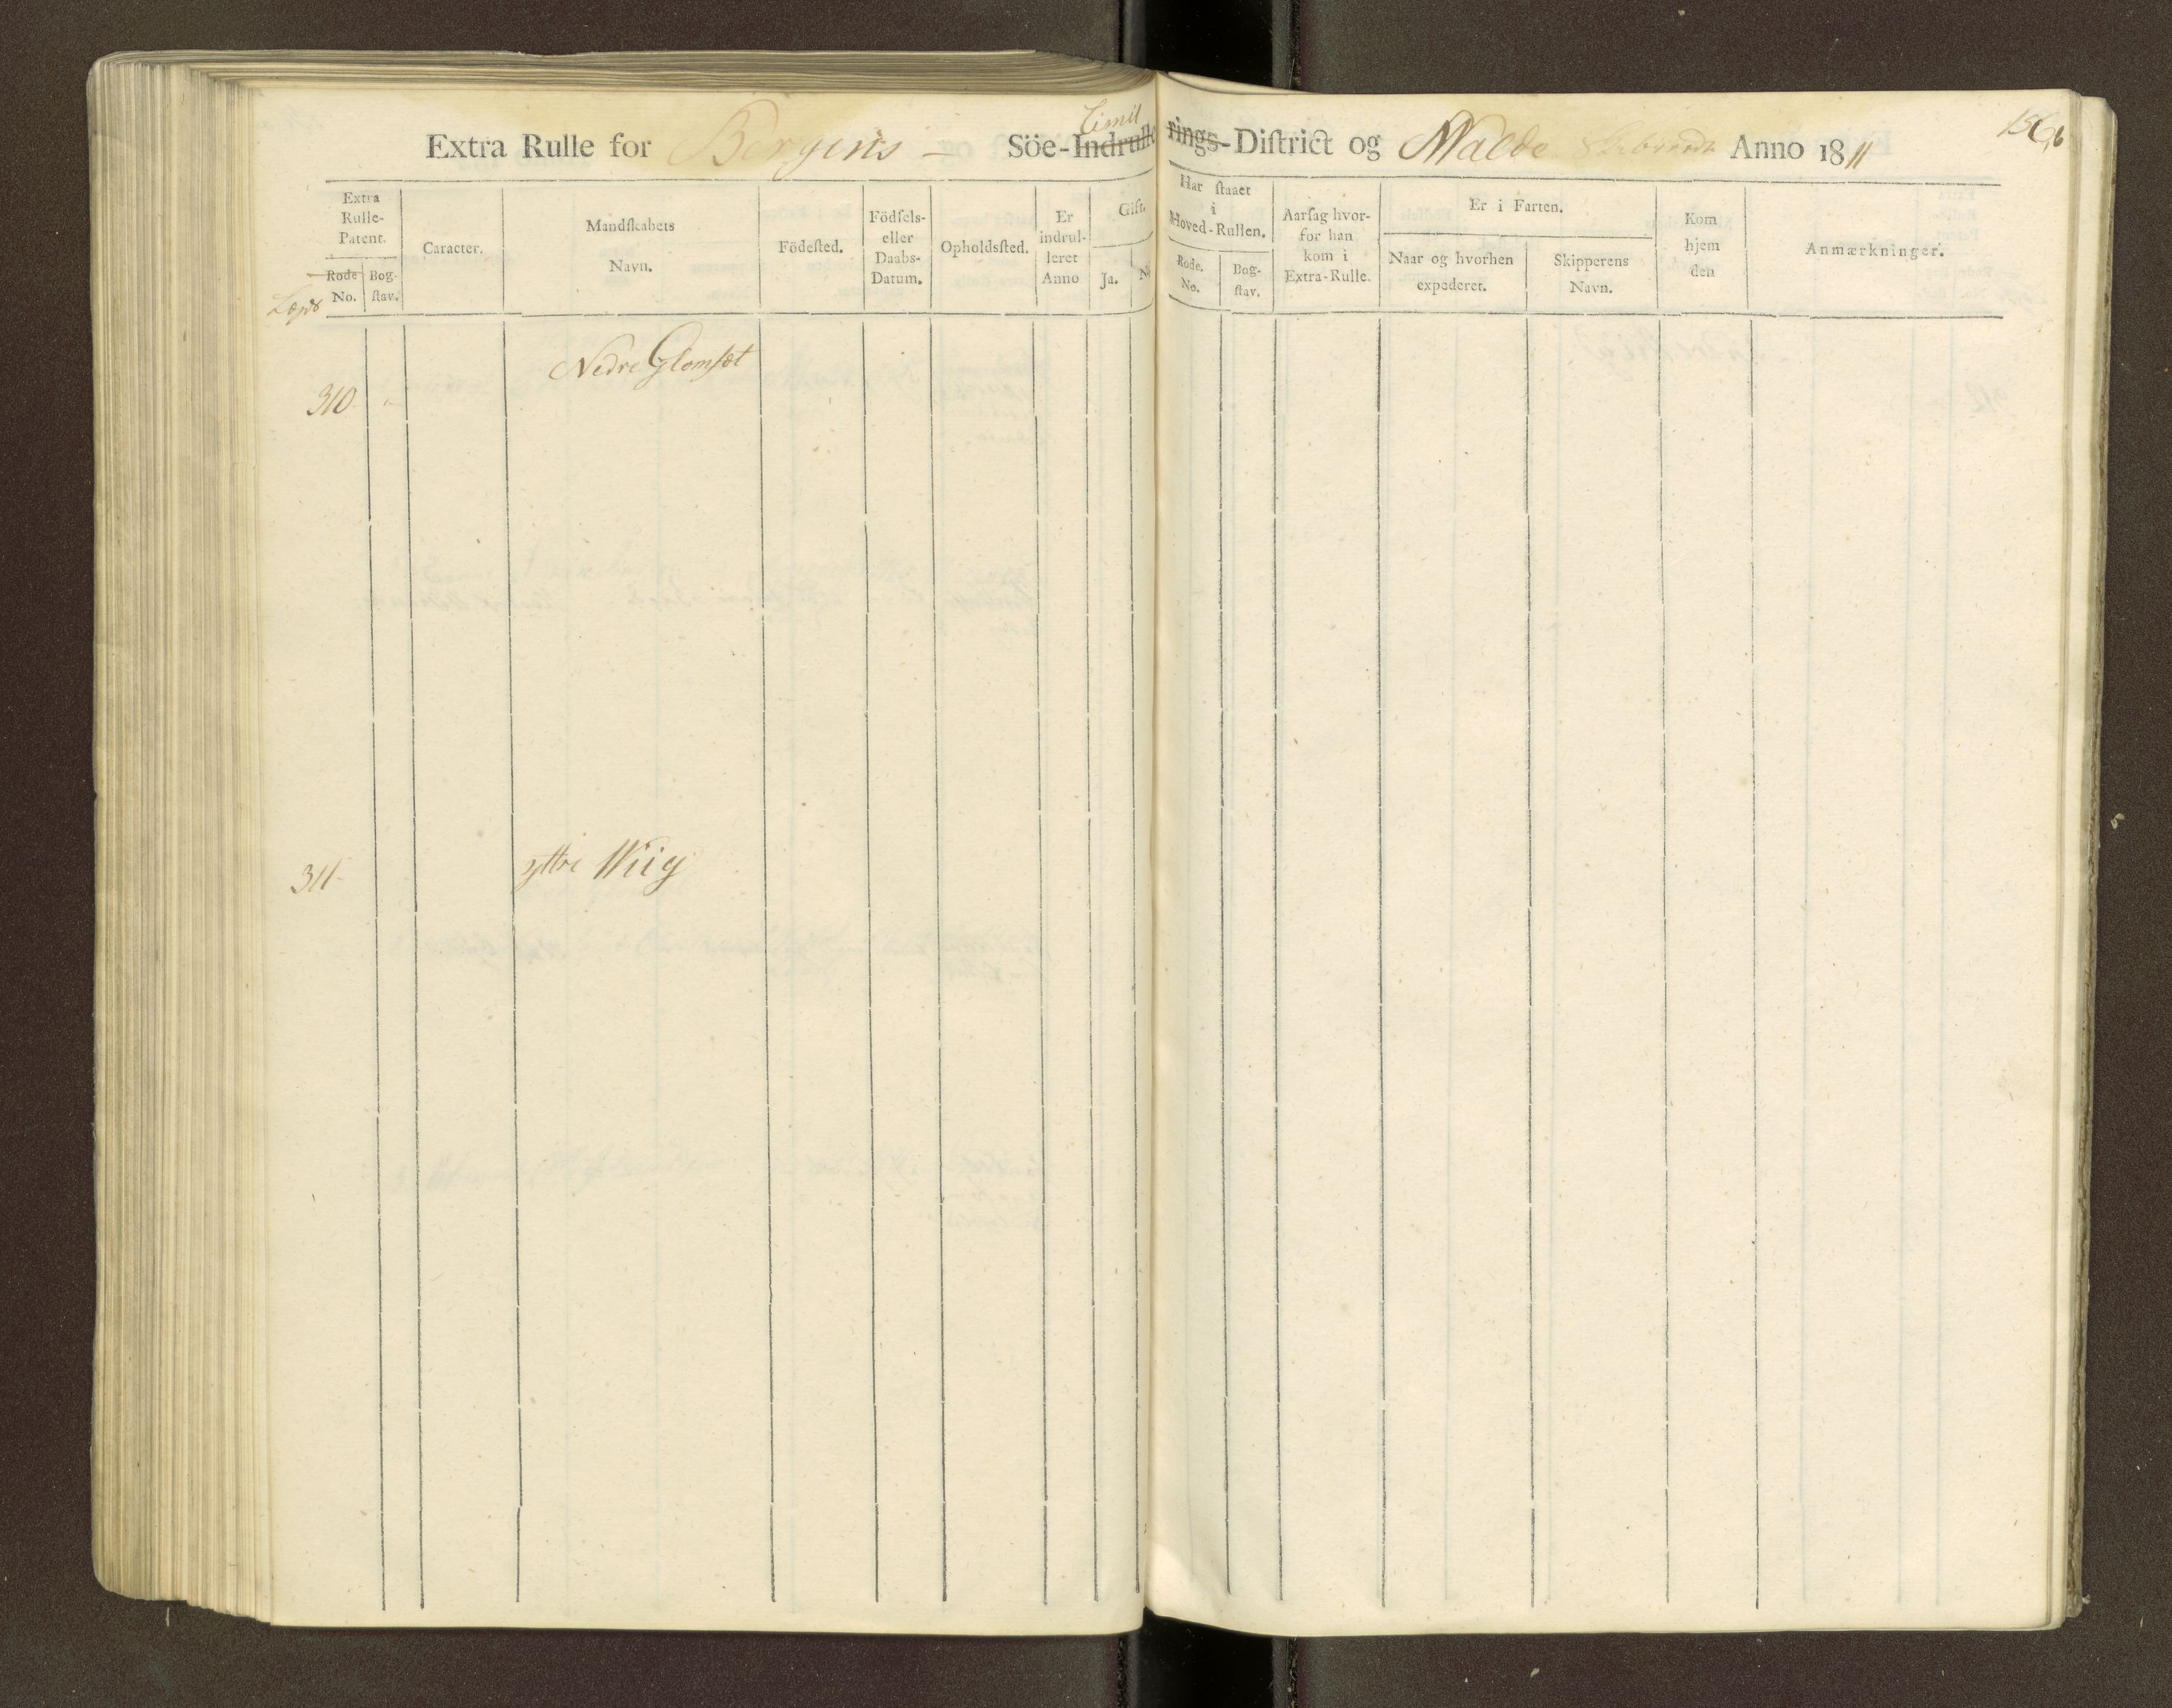 156b
Limit
Extra Rulle for Bergens - Söe-Indrullerings-Diſtrict og Malde Skibrede Anno 1811
Extra Rulle-Patent.
Rode No.
Bog-ſtav.
Caracter.
Mandſkabets Navn.
Födeſted.
Födſels- eller Daabs-Datum.
Opholdsſted.
Er indrul-leret Anno
Gift.
Ja.
Har ſtaaet i Hoved-Rullen.
Rode. No.
Bog-ſtav.
Aarſag hvor-for han kom i Extra-Rulle.
Er i Farten.
Naar og hvorhen expederet.
Skipperens Navn.
Kom hjem den
Anmærkninger.
Lægd
Nedre Glomſæt
310
311
yttre Wiig